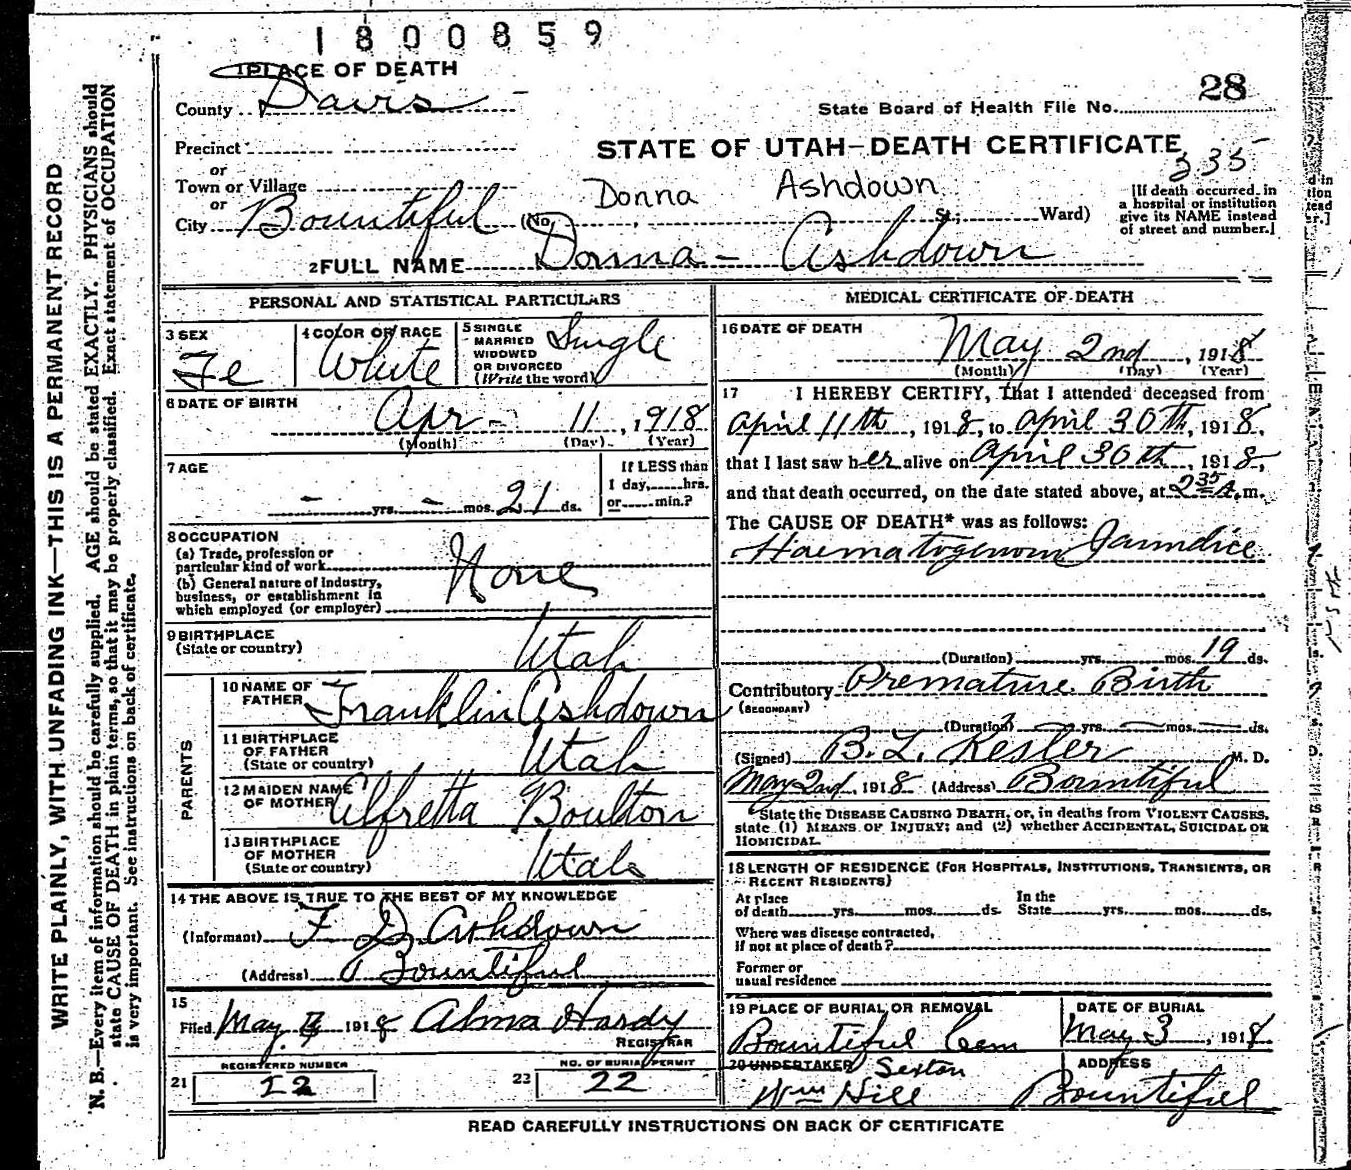 1800859
1 PLACE OF DEATH
County Davis
State Board of Health File No. 28
Precinct
STATE OF UTAH—DEATH CERTIFICATE
335
or
Town or Village
Donna Ashdown
or
City Bountiful (No. St.; Ward)
[If death occurred in a hospital or institution give its NAME instead of street and number.]
2 FULL NAME Donna - Ashdown
PERSONAL AND STATISTICAL PARTICULARS
3 SEX Fe
4 COLOR OR RACE White
5 SINGLE MARRIED WIDOWED OR DIVORCED (Write the word) Single
6 DATE OF BIRTH
Apr - 11, 1918
(Month) (Day) (Year)
7 AGE
- yrs. - mos. 21 ds.
If LESS than
1 day, hrs.
or min.?
8 OCCUPATION
(a) Trade, profession or
particular kind of work
(b) General nature of industry,
business, or establishment in
which employed (or employer)
None
9 BIRTHPLACE
(State or country) Utah
PARENTS
10 NAME OF
FATHER Franklin Ashdown
11 BIRTHPLACE
OF FATHER
(State or country) Utah
12 MAIDEN NAME
OF MOTHER Alfretta Boulton
13 BIRTHPLACE
OF MOTHER
(State or country) Utah
14 THE ABOVE IS TRUE TO THE BEST OF MY KNOWLEDGE
(Informant) F D Ashdown
(Address) Bountiful
15
Filed May 1918 Alma Hardy
REGISTRAR
REGISTERED NUMBER
21 12
NO. OF BURIAL PERMIT
22 22
MEDICAL CERTIFICATE OF DEATH
16 DATE OF DEATH
May 2nd, 1918
(Month) (Day) (Year)
17 I HEREBY CERTIFY, that I attended deceased from
April 11th, 1918, to April 30th, 1918,
that I last saw her alive on April 30th, 1918,
and that death occurred, on the date stated above, at 2 35 A.m.
The CAUSE OF DEATH* was as follows:
Haematogenous Jaundice
(Duration) yrs. mos. 19 ds.
Contributory Premature Birth
(SECONDARY)
(Duration) — yrs. — mos. — ds.
(Signed) B. L. Kesler M. D.
May 2nd, 1918 (Address) Bountiful
State the DISEASE CAUSING DEATH, or, in deaths from VIOLENT CAUSES,
state (1) MEANS OF INJURY; and (2) whether ACCIDENTAL, SUICIDAL OR
HOMICIDAL.
18 LENGTH OF RESIDENCE (FOR HOSPITALS, INSTITUTIONS, TRANSIENTS, OR
RECENT RESIDENTS)
At place of death yrs. mos. ds. In the State yrs. mos. ds.
Where was disease contracted,
if not at place of death?
Former or
usual residence
19 PLACE OF BURIAL OR REMOVAL
Bountiful Cem
DATE OF BURIAL
May 3, 1918
20 UNDERTAKER Sexton
Wm Hill
ADDRESS
Bountiful
READ CAREFULLY INSTRUCTIONS ON BACK OF CERTIFICATE
WRITE PLAINLY, WITH UNFADING INK—THIS IS A PERMANENT RECORD
N. B.—Every item of information should be carefully supplied. AGE should be stated EXACTLY. PHYSICIANS should
state CAUSE OF DEATH in plain terms, so that it may be properly classified. Exact statement of OCCUPATION
is very important. See instructions on back of certificate.